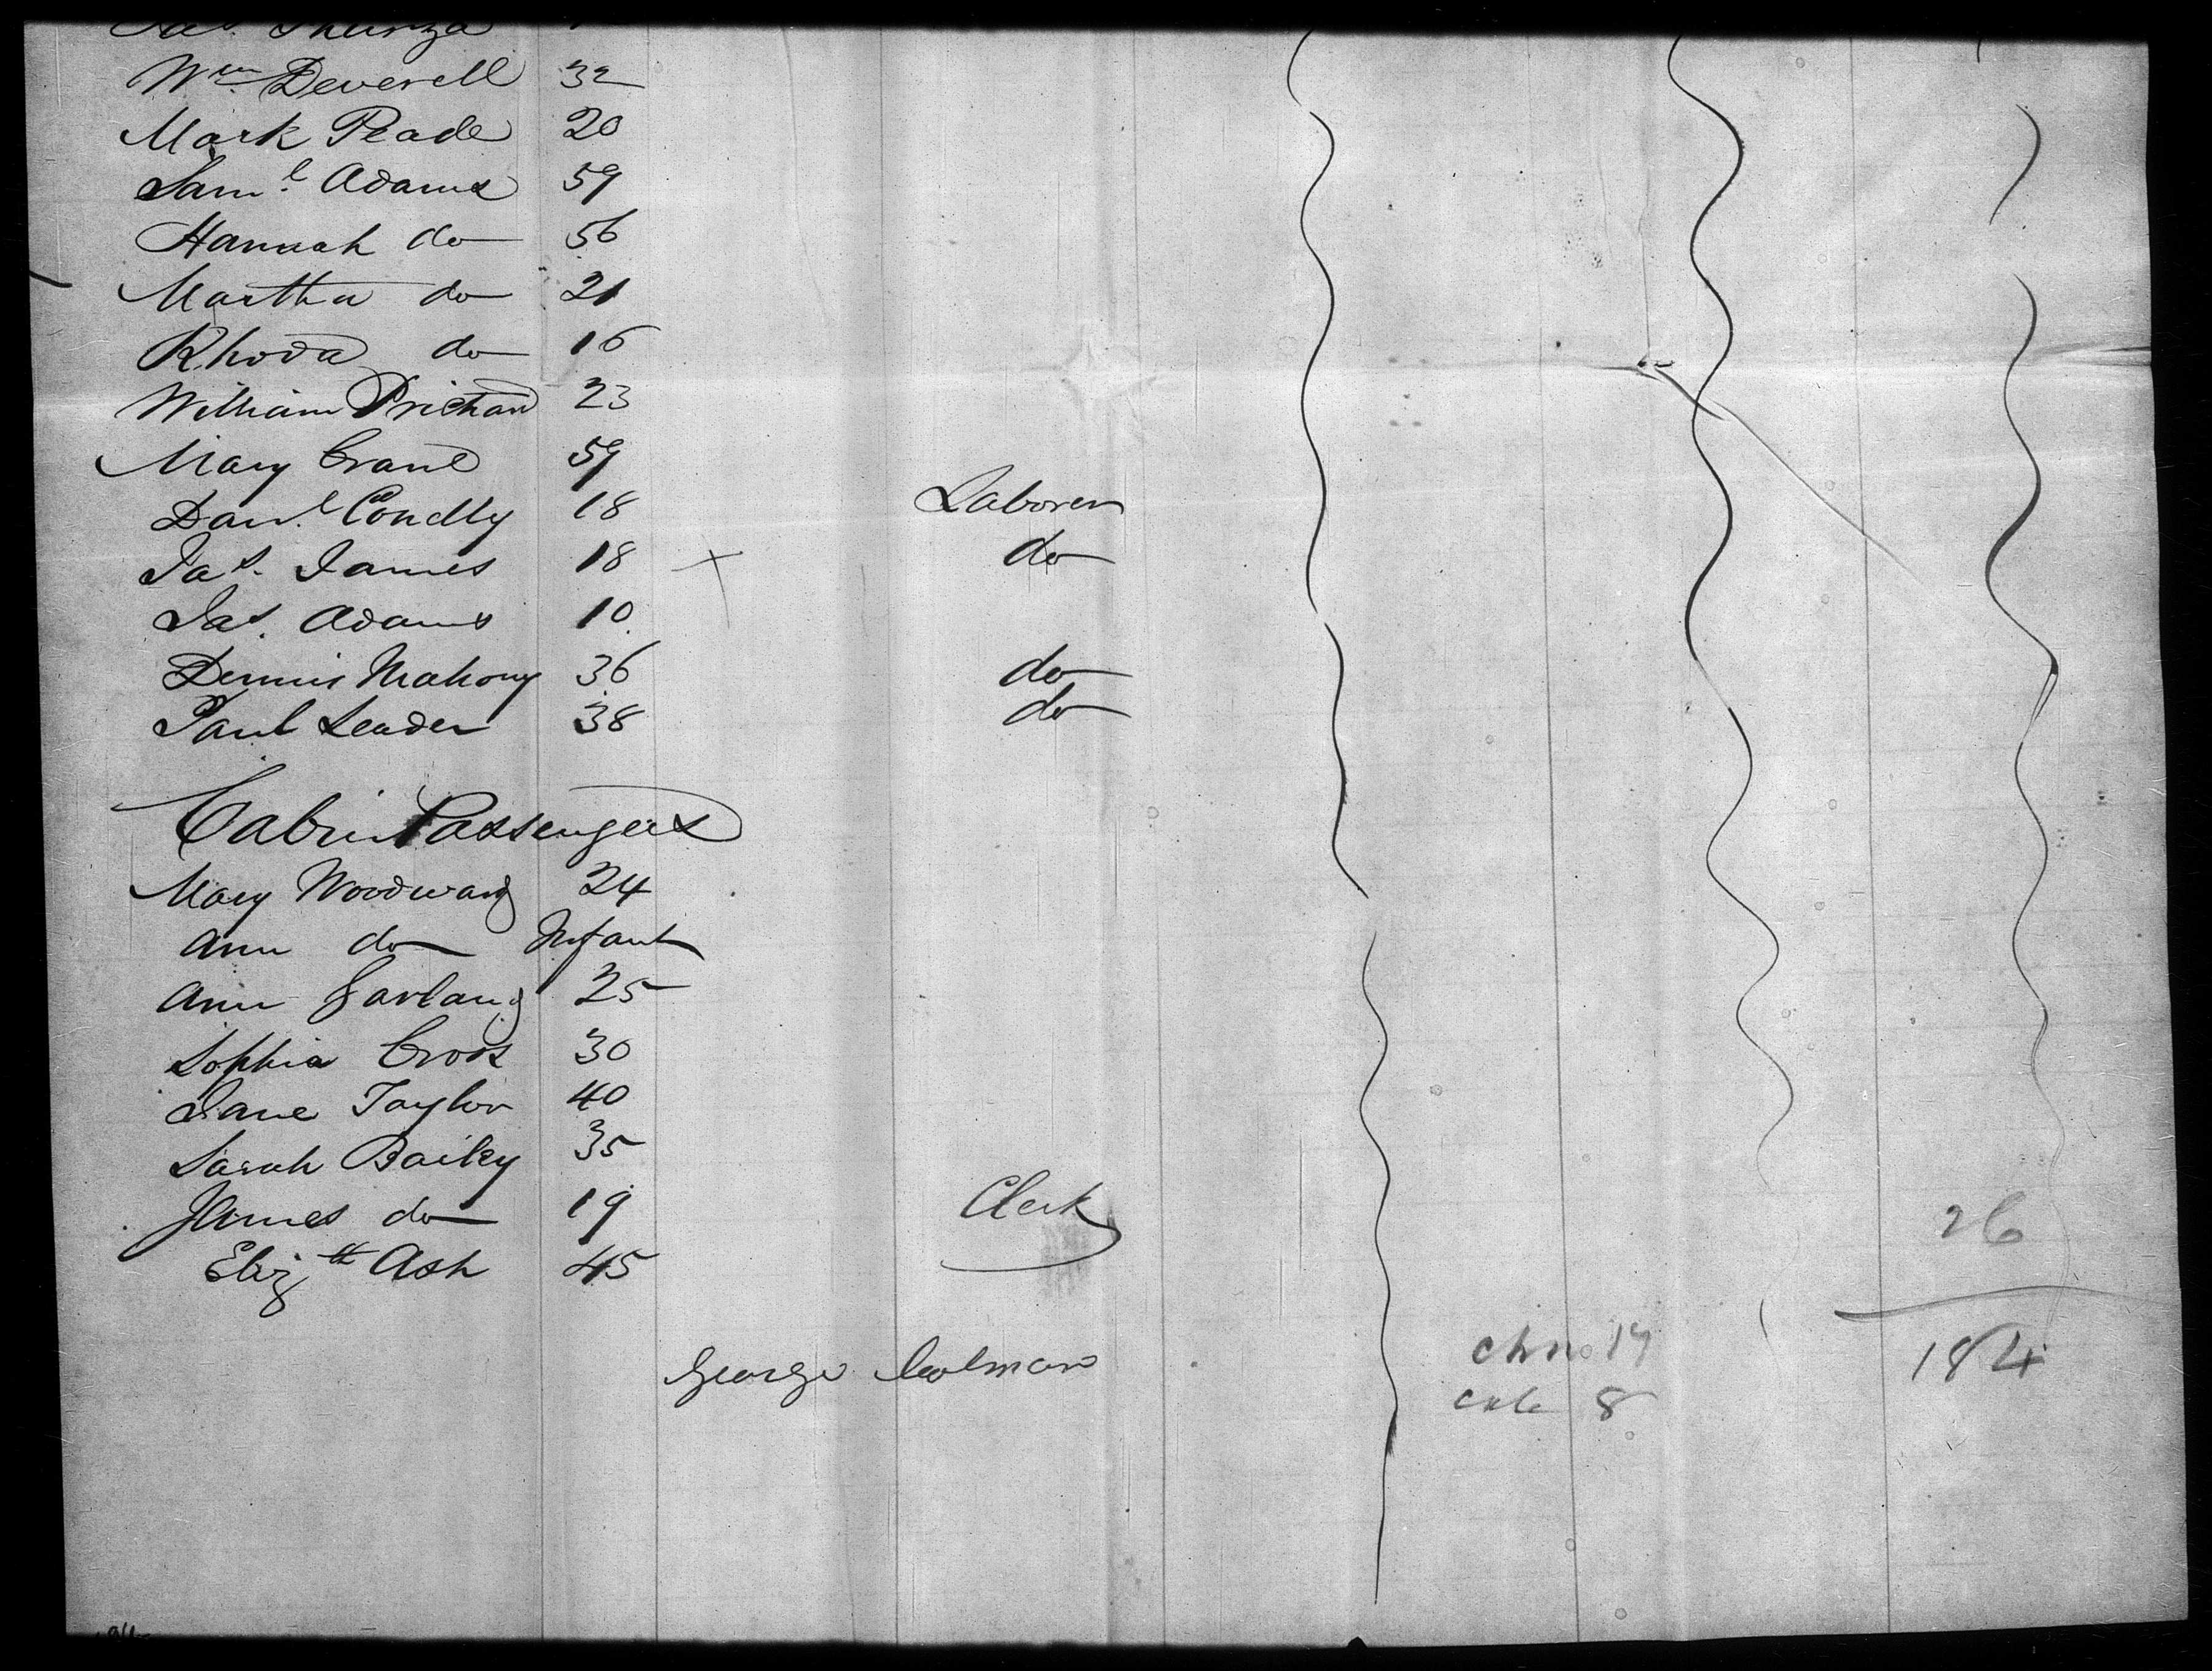 Wm. Deverell 32
Mark Peade 20
Saml. Adams 59
Hannah do 56
Martha do 21
Rhoda do 16
William Prichard 23
Mary Crane 59
Danl. Condly 18 Laborer
Jas. James 18 do
Jas. Adams 10
Dennis Mahony 36 do
Paul Leader 38 do
Cabin Passengers
Mary Woodward 24
Ann do Infant
Ann Garland 25
Sophia Cross 30
Jane Taylor 40
Sarah Bailey 35
James do 19 Clerk
Elizth Ash 45
26
184
George Coolman
8